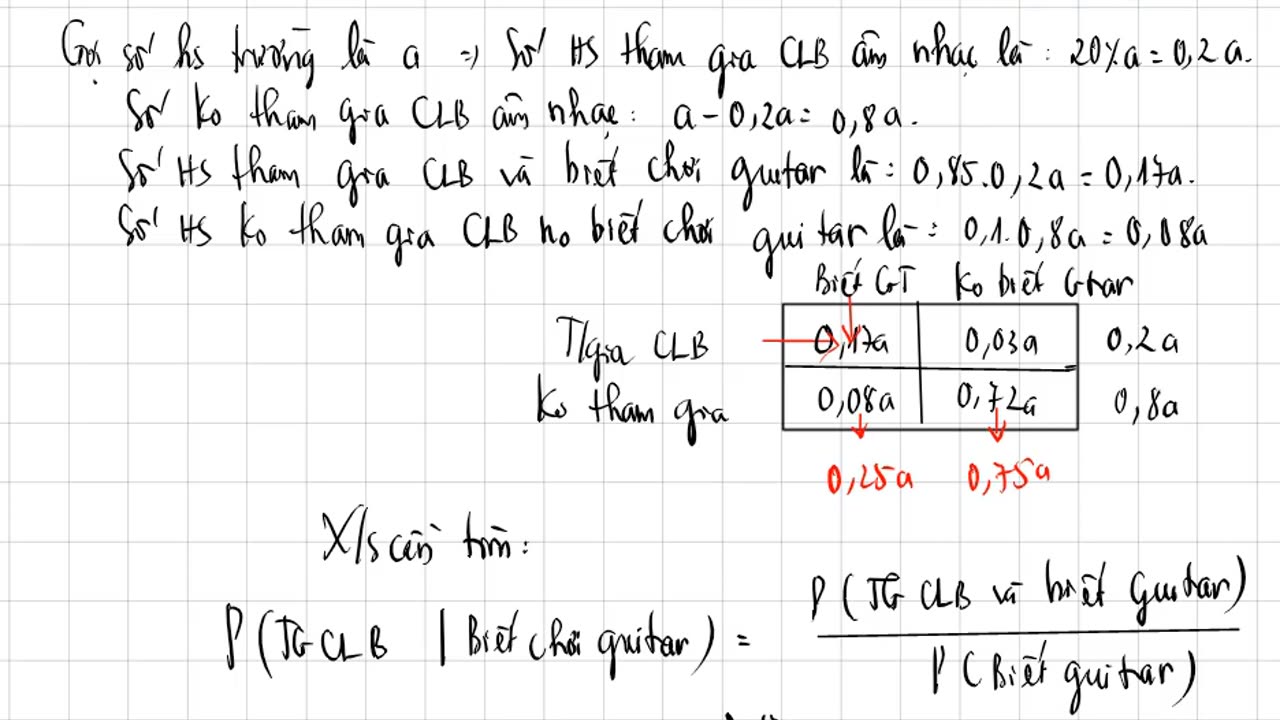 Gọi số hs trường là a => Số HS tham gia CLB âm nhạc là: 20%a = 0,2a.
Số ko tham gia CLB âm nhạc: a - 0,2a = 0,8a.
Số HS tham gia CLB và biết chơi guitar là: 0,85.0,2a = 0,17a.
Số HS ko tham gia CLB mà biết chơi guitar là: 0,1.0,8a = 0,08a
Biết GT Ko biết Gtar
T/gia CLB 0,17a 0,03a 0,2a
Ko tham gia 0,08a 0,72a 0,8a
0,25a 0,75a
X/s cần tìm:
P(TG CLB và biết Guitar)
P(TG CLB | Biết chơi guitar) =
P(Biết guitar)